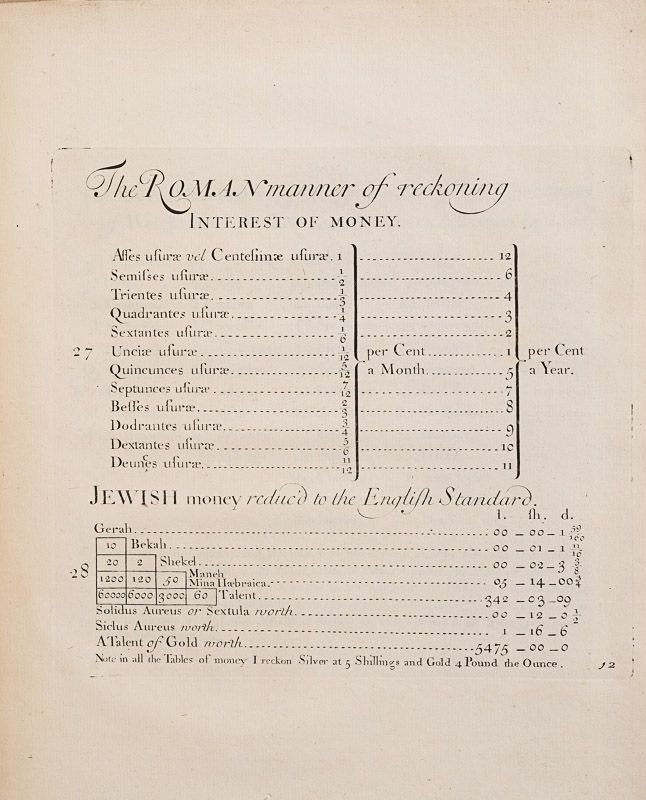 The ROMAN manner of reckoning
INTEREST OF MONEY.
Aſſes uſuræ vel Centeſimæ uſuræ. 1 12
Semiſses uſuræ 1/2 6
Trientes uſuræ 1/3 4
Quadrantes uſuræ 1/4 3
Sextantes uſuræ 1/6 2
27 Unciæ uſuræ 1/12 per Cent 1 per Cent
Quincunces uſuræ 5/12 a Month 5 a Year.
Septunces uſuræ 7/12 7
Beſſes uſuræ 2/3 8
Dodrantes uſuræ 3/4 9
Dextantes uſuræ 5/6 10
Deunces uſuræ 11/12 11
JEWISH money reduc'd to the Engliſh Standard.
l. ſh. d.
Gerah 00 – 00 – 1 39/160
10 Bekah 00 – 01 – 1 11/16
20 2 Shekel 00 – 02 – 3 3/8
28 1200 120 50 Maneh
Mina Hæbraica 05 – 14 – 00 3/4
60000 6000 3000 60 Talent 342 – 03 – 09
Solidus Aureus or Sextula worth 00 – 12 – 0 1/2
Siclus Aureus worth 1 – 16 – 6
A Talent of Gold worth 5475 – 00 – 0
Note in all the Tables of money I reckon Silver at 5 Shillings and Gold 4 Pound the Ounce. 12